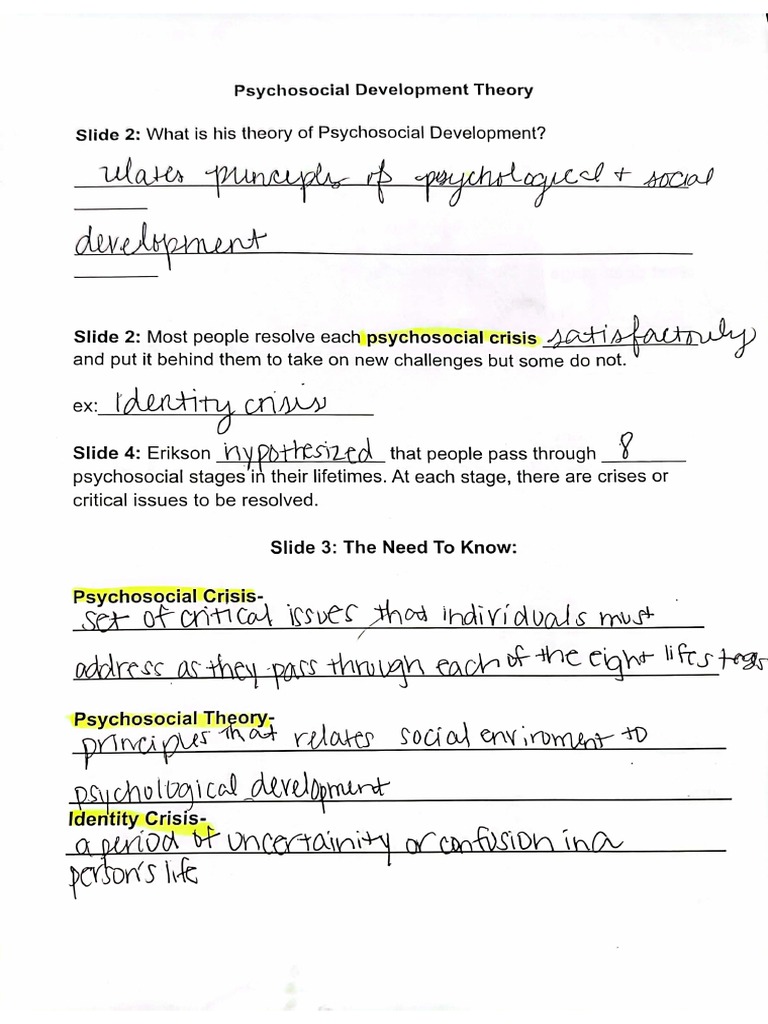 Psychosocial Development Theory
Slide 2: What is his theory of Psychosocial Development?
relates principles of psychological + social
development
Slide 2: Most people resolve each psychosocial crisis satisfactorily
and put it behind them to take on new challenges but some do not.
ex: Identity crisis
Slide 4: Erikson hypothesized that people pass through 8
psychosocial stages in their lifetimes. At each stage, there are crises or
critical issues to be resolved.
Slide 3: The Need To Know:
Psychosocial Crisis-
set of critical issues that individuals must
address as they pass through each of the eight life stages
Psychosocial Theory-
principles that relates social enviroment to
psychological development
Identity Crisis-
a period of uncertainity or confusion in a
person's life